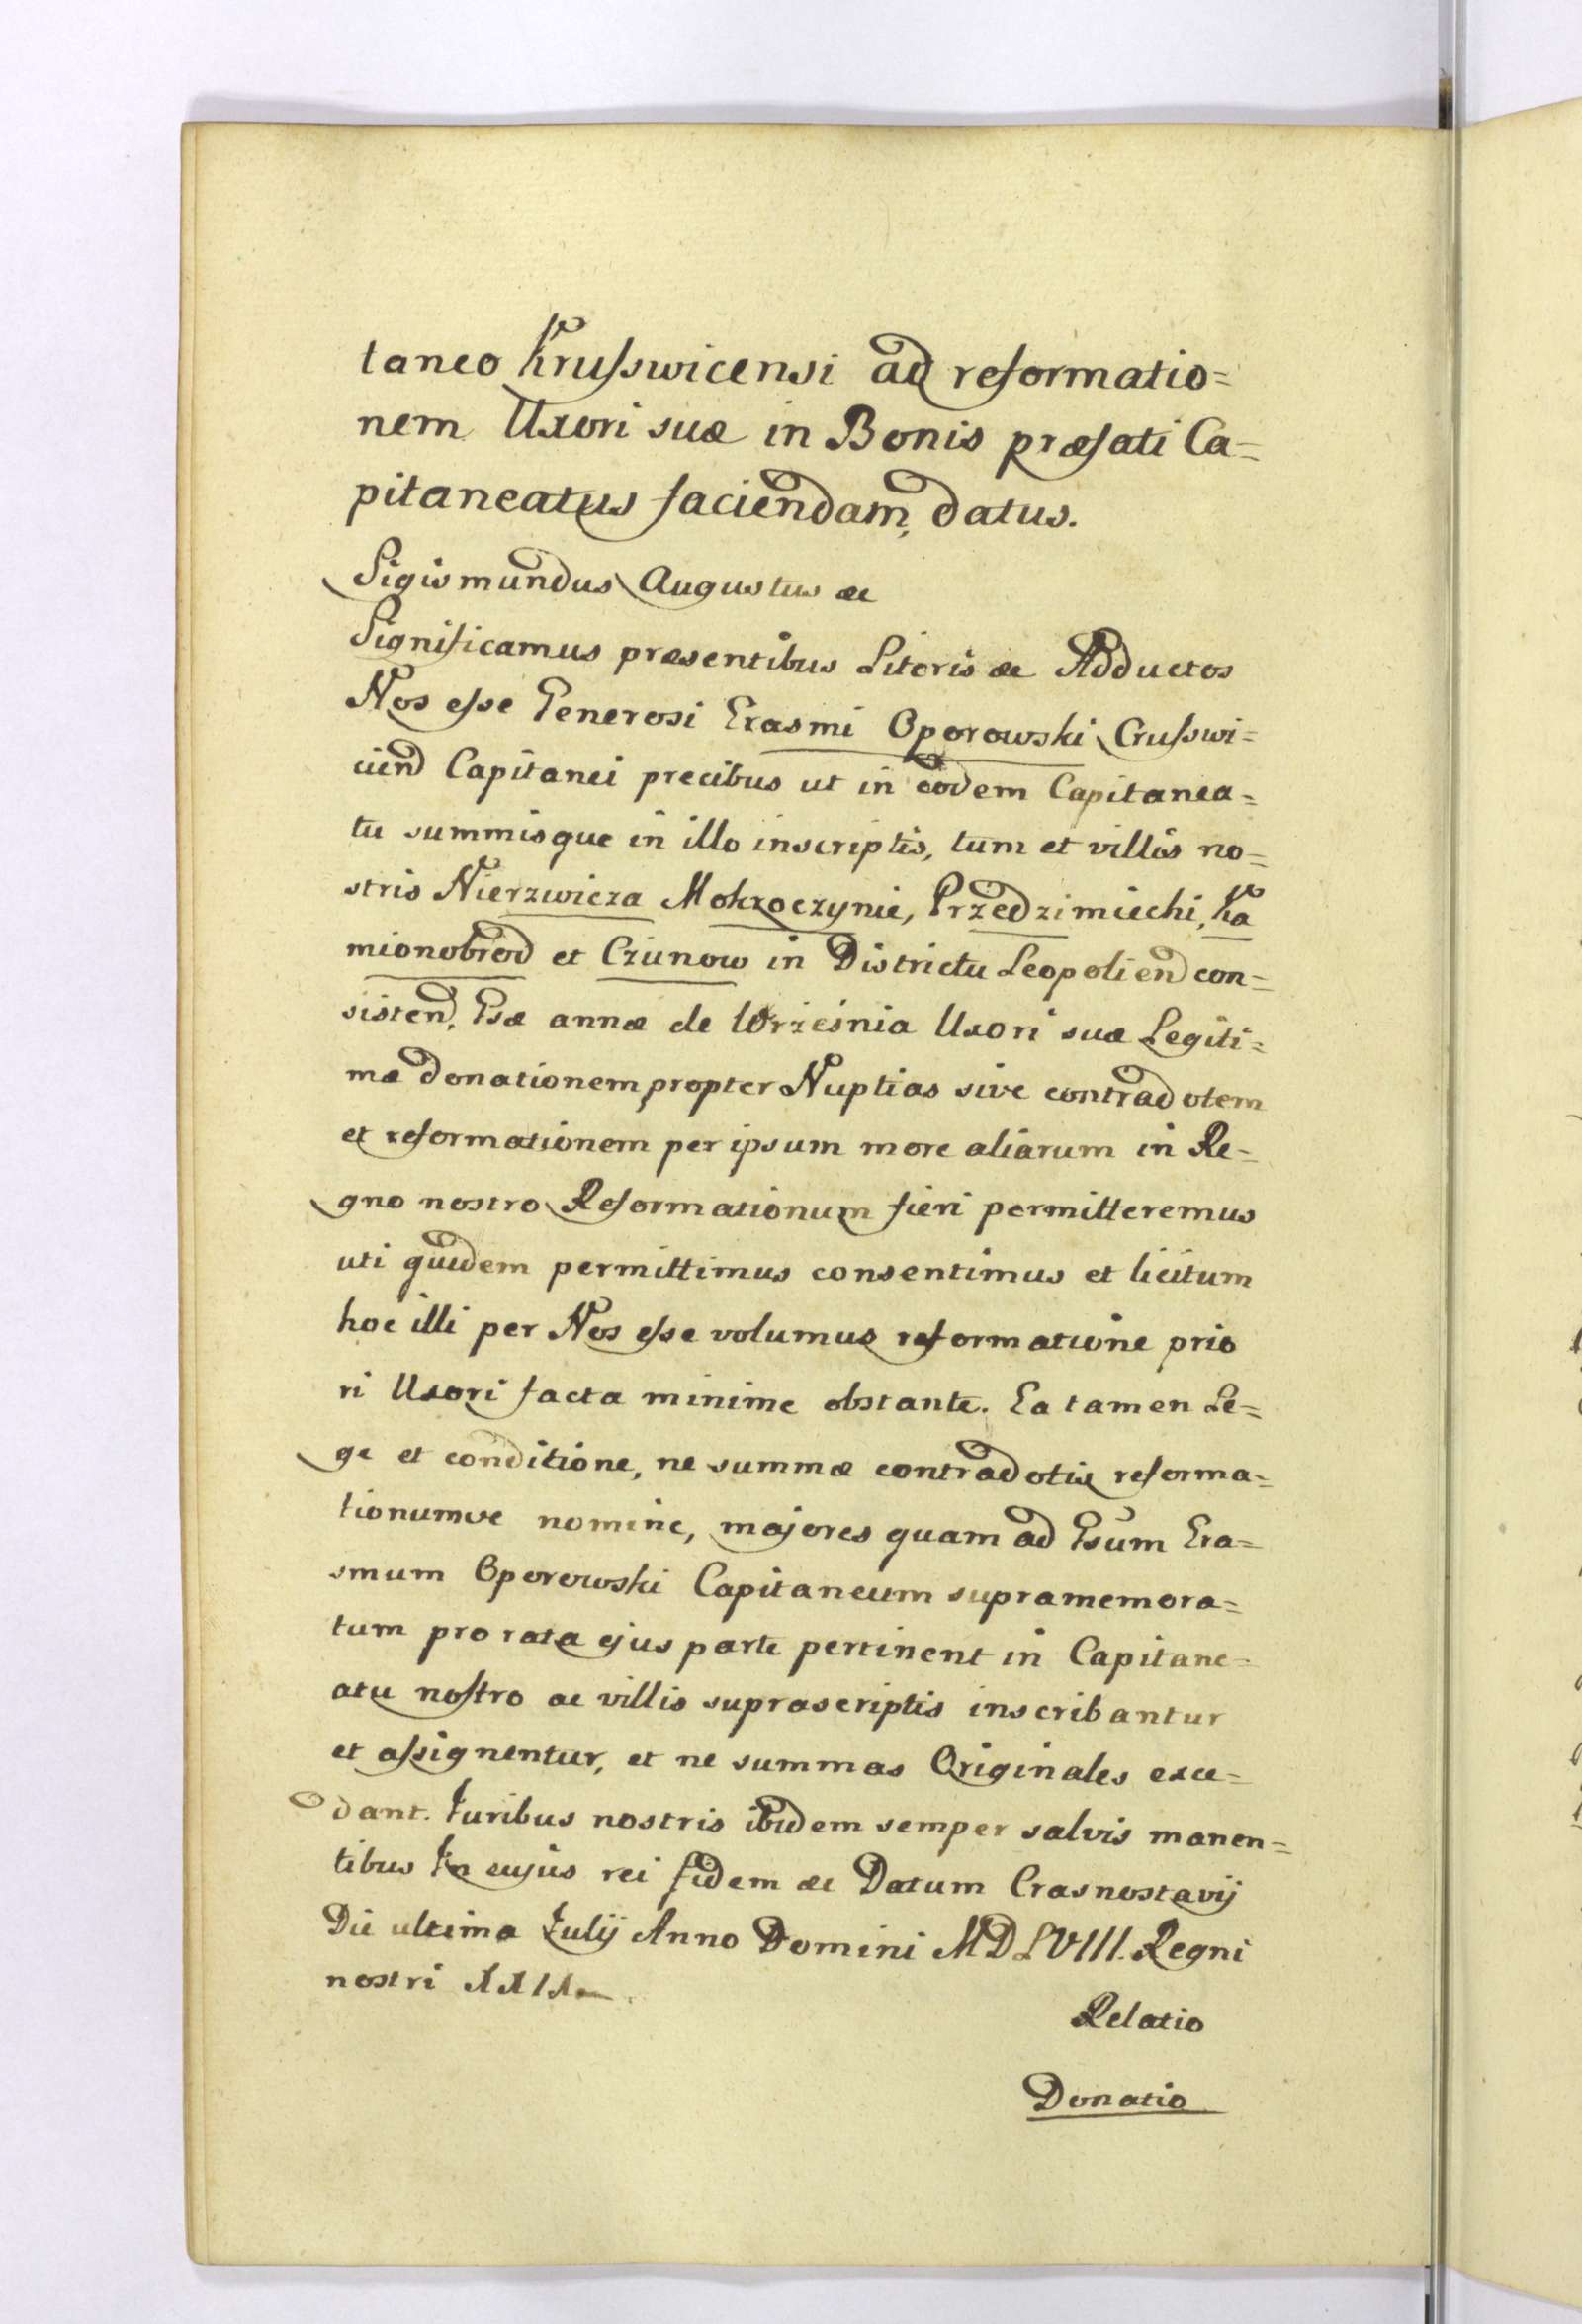 taneo Krusswicensi ad reformatio=
nem Uxori suæ in Bonis præfati Ca=
pitaneatus faciendam, datus.
Sigismundus Augustus &c
Significamus præsentibus Literis &c Adductos
Nos esse Generosi Erasmi Oporowski Crusswi=
cien Capitanei precibus ut in eodem Capitanea=
tu summisque in illo inscriptis, tum et villis no=
stris Nierzwicza Mokroczynie, Przedzimiechi, Ka
mionobrod et Czunow in Districtu Leopolien con=
sisten, Gsæ annæ de Września Uxori suæ Legiti=
mæ donationem propter Nuptias sive contradotem
et reformationem per ipsum more aliarum in Re=
gno nostro Reformationum fieri permitteremus
uti quidem permittimus consentimus et licitum
hoc illi per Nos esse volumus reformatione prio
ri Uxori facta minime obstante. Ea tamen Le=
ge et conditione, ne summæ contradotis reforma=
tionumve nomine, majores quam ad Gsum Era=
smum Oporowski Capitaneum supramemora=
tum pro rata ejus parte pertinent in Capitane=
atu nostro ac villis suprascriptis inscribantur
et assignentur, et ne summas Originales exce=
dant. Juribus nostris ibidem semper salvis manen=
tibus In cujus rei fidem &c Datum Crasnostavij
Die ultima Julij Anno Domini MDLVIII. Regni
nostri XXIX.
Relatio
Donatio